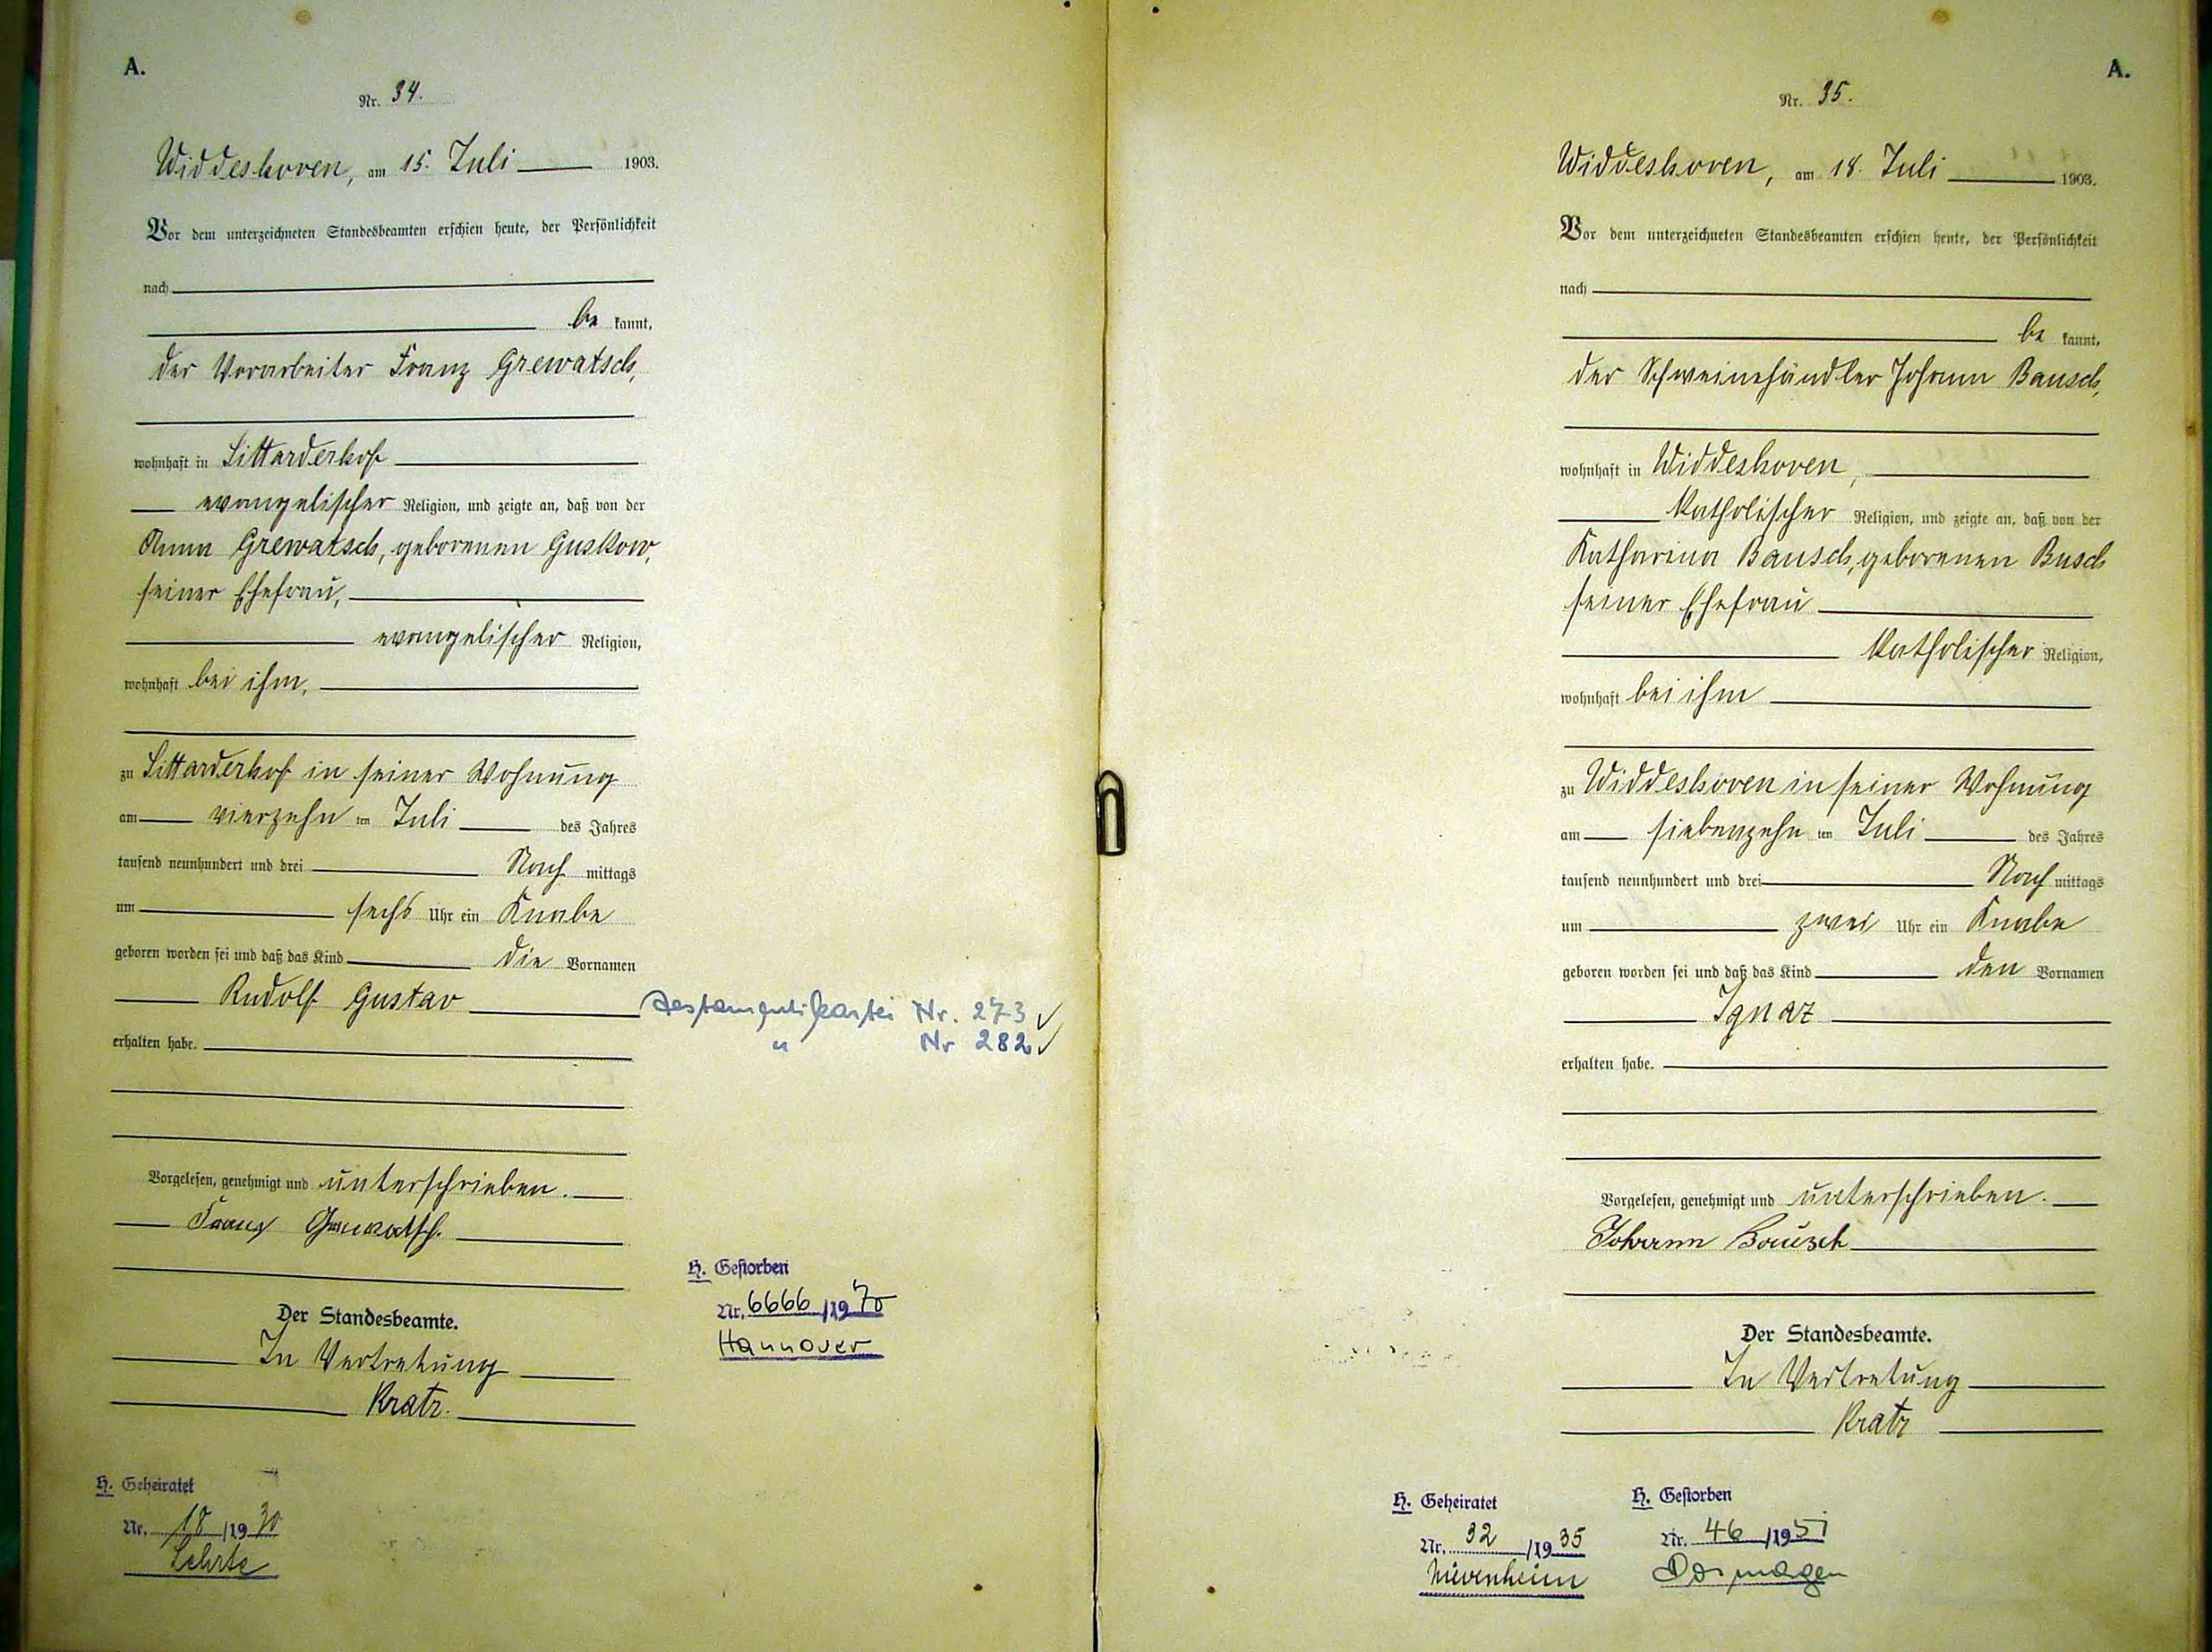 A.
Nr. 34.
Widdeshoven, am 15. Juli 1903.
Vor dem unterzeichneten Standesbeamten erschien heute, der Persönlichkeit
nach
be kannt,
der Vorarbeiter Franz Grewatsch,
wohnhaft in Sittarderhof
evangelischer Religion, und zeigte an, daß von der
Anna Grewatsch, geborenen Guskow,
seiner Ehefrau,
evangelischer Religion,
wohnhaft bei ihm,
zu Sittarderhof in seiner Wohnung
am vierzehn ten Juli des Jahres
tausend neunhundert und drei Nach mittags
um sechs Uhr ein Knabe
geboren worden sei und daß das Kind die Vornamen
Rudolf Gustav
erhalten habe.
Testamentskartei Nr. 273 ✓
" Nr 282 ✓
Vorgelesen, genehmigt und unterschrieben.
Franz Grewatsch.
Der Standesbeamte.
In Vertretung
Kratz.
H. Gestorben
Nr. 6666 /1970
Hannover
H. Geheiratet
Nr. 18 /1930
Lehrte
A.
Nr. 35.
Widdeshoven, am 18. Juli 1903.
Vor dem unterzeichneten Standesbeamten erschien heute, der Persönlichkeit
nach
be kannt,
der Schweinehändler Johann Bausch,
wohnhaft in Widdeshoven,
katholischer Religion, und zeigte an, daß von der
Katharina Bausch, geborenen Busch
seiner Ehefrau
katholischer Religion,
wohnhaft bei ihm
zu Widdeshoven in seiner Wohnung
am siebenzehn ten Juli des Jahres
tausend neunhundert und drei Nach mittags
um zwei Uhr ein Knabe
geboren worden sei und daß das Kind den Vornamen
Ignaz
erhalten habe.
Vorgelesen, genehmigt und unterschrieben.
Johann Bausch
Der Standesbeamte.
In Vertretung
Kratz
H. Geheiratet
Nr. 32 /1935
Nievenheim
H. Gestorben
Nr. 46 /1951
Dormagen